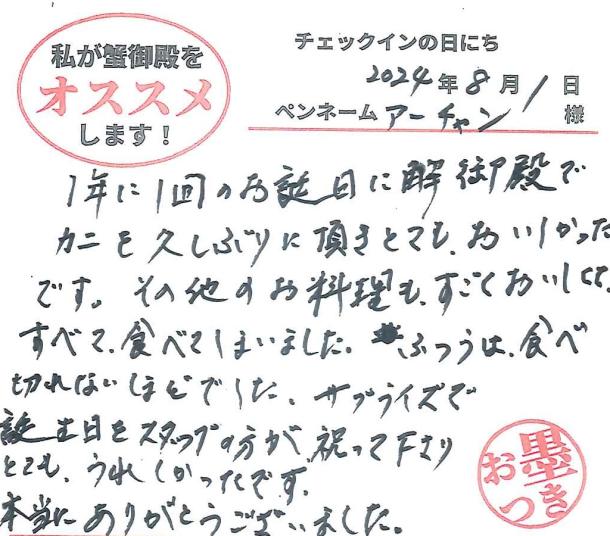 私が蟹御殿を
オススメ
します！
チェックインの日にち
2024年8月1日
ペンネーム アーチャン 様
1年に1回のお誕日に解御殿で
カニを久しぶりに頂きとても、おいしかった
です。その他のお料理も、すごくおいしくて、
すべて、食べてしまいました。ふつうは、食べ
切れないほどでした、サプライズで
誕生日をスタッフの方が祝って下さり
とても、うれしかったです。
本当にありがとうございました。
お墨
つき